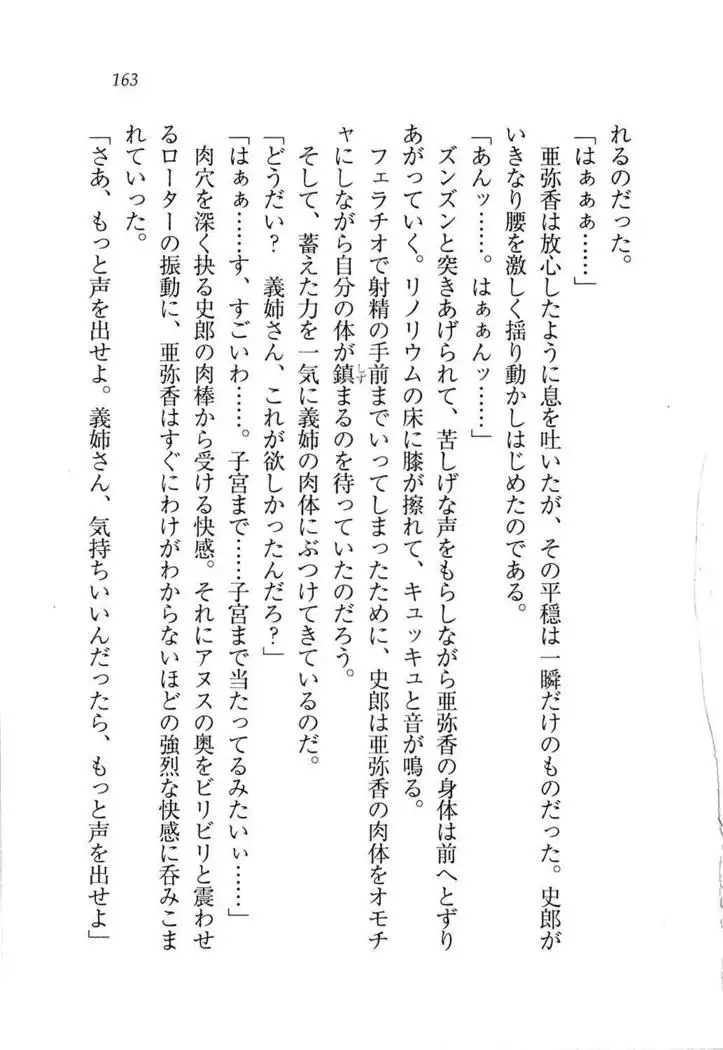 163
れるのだった。
「はぁぁぁ……」
亜弥香は放心したように息を吐いたが、その平穏は一瞬だけのものだった。史郎が
いきなり腰を激しく揺り動かしはじめたのである。
「あんッ……。はぁぁんッ……」
ズンズンと突きあげられて、苦しげな声をもらしながら亜弥香の身体は前へとずり
あがっていく。リノリウムの床に膝が擦れて、キュッキュと音が鳴る。
フェラチオで射精の手前までいってしまったために、史郎は亜弥香の肉体をオモチ
ャにしながら自分の体が鎮しずまるのを待っていたのだろう。
そして、蓄えた力を一気に義姉の肉体にぶつけてきているのだ。
「どうだい？　義姉さん、これが欲しかったんだろ？」
「はぁぁ……す、すごいわ……。子宮まで……子宮まで当たってるみたいぃ……」
肉穴を深く抉る史郎の肉棒から受ける快感。それにアヌスの奥をビリビリと震わせ
るローターの振動に、亜弥香はすぐにわけがわからないほどの強烈な快感に呑みこま
れていった。
「さあ、もっと声を出せよ。義姉さん、気持ちいいんだったら、もっと声を出せよ」